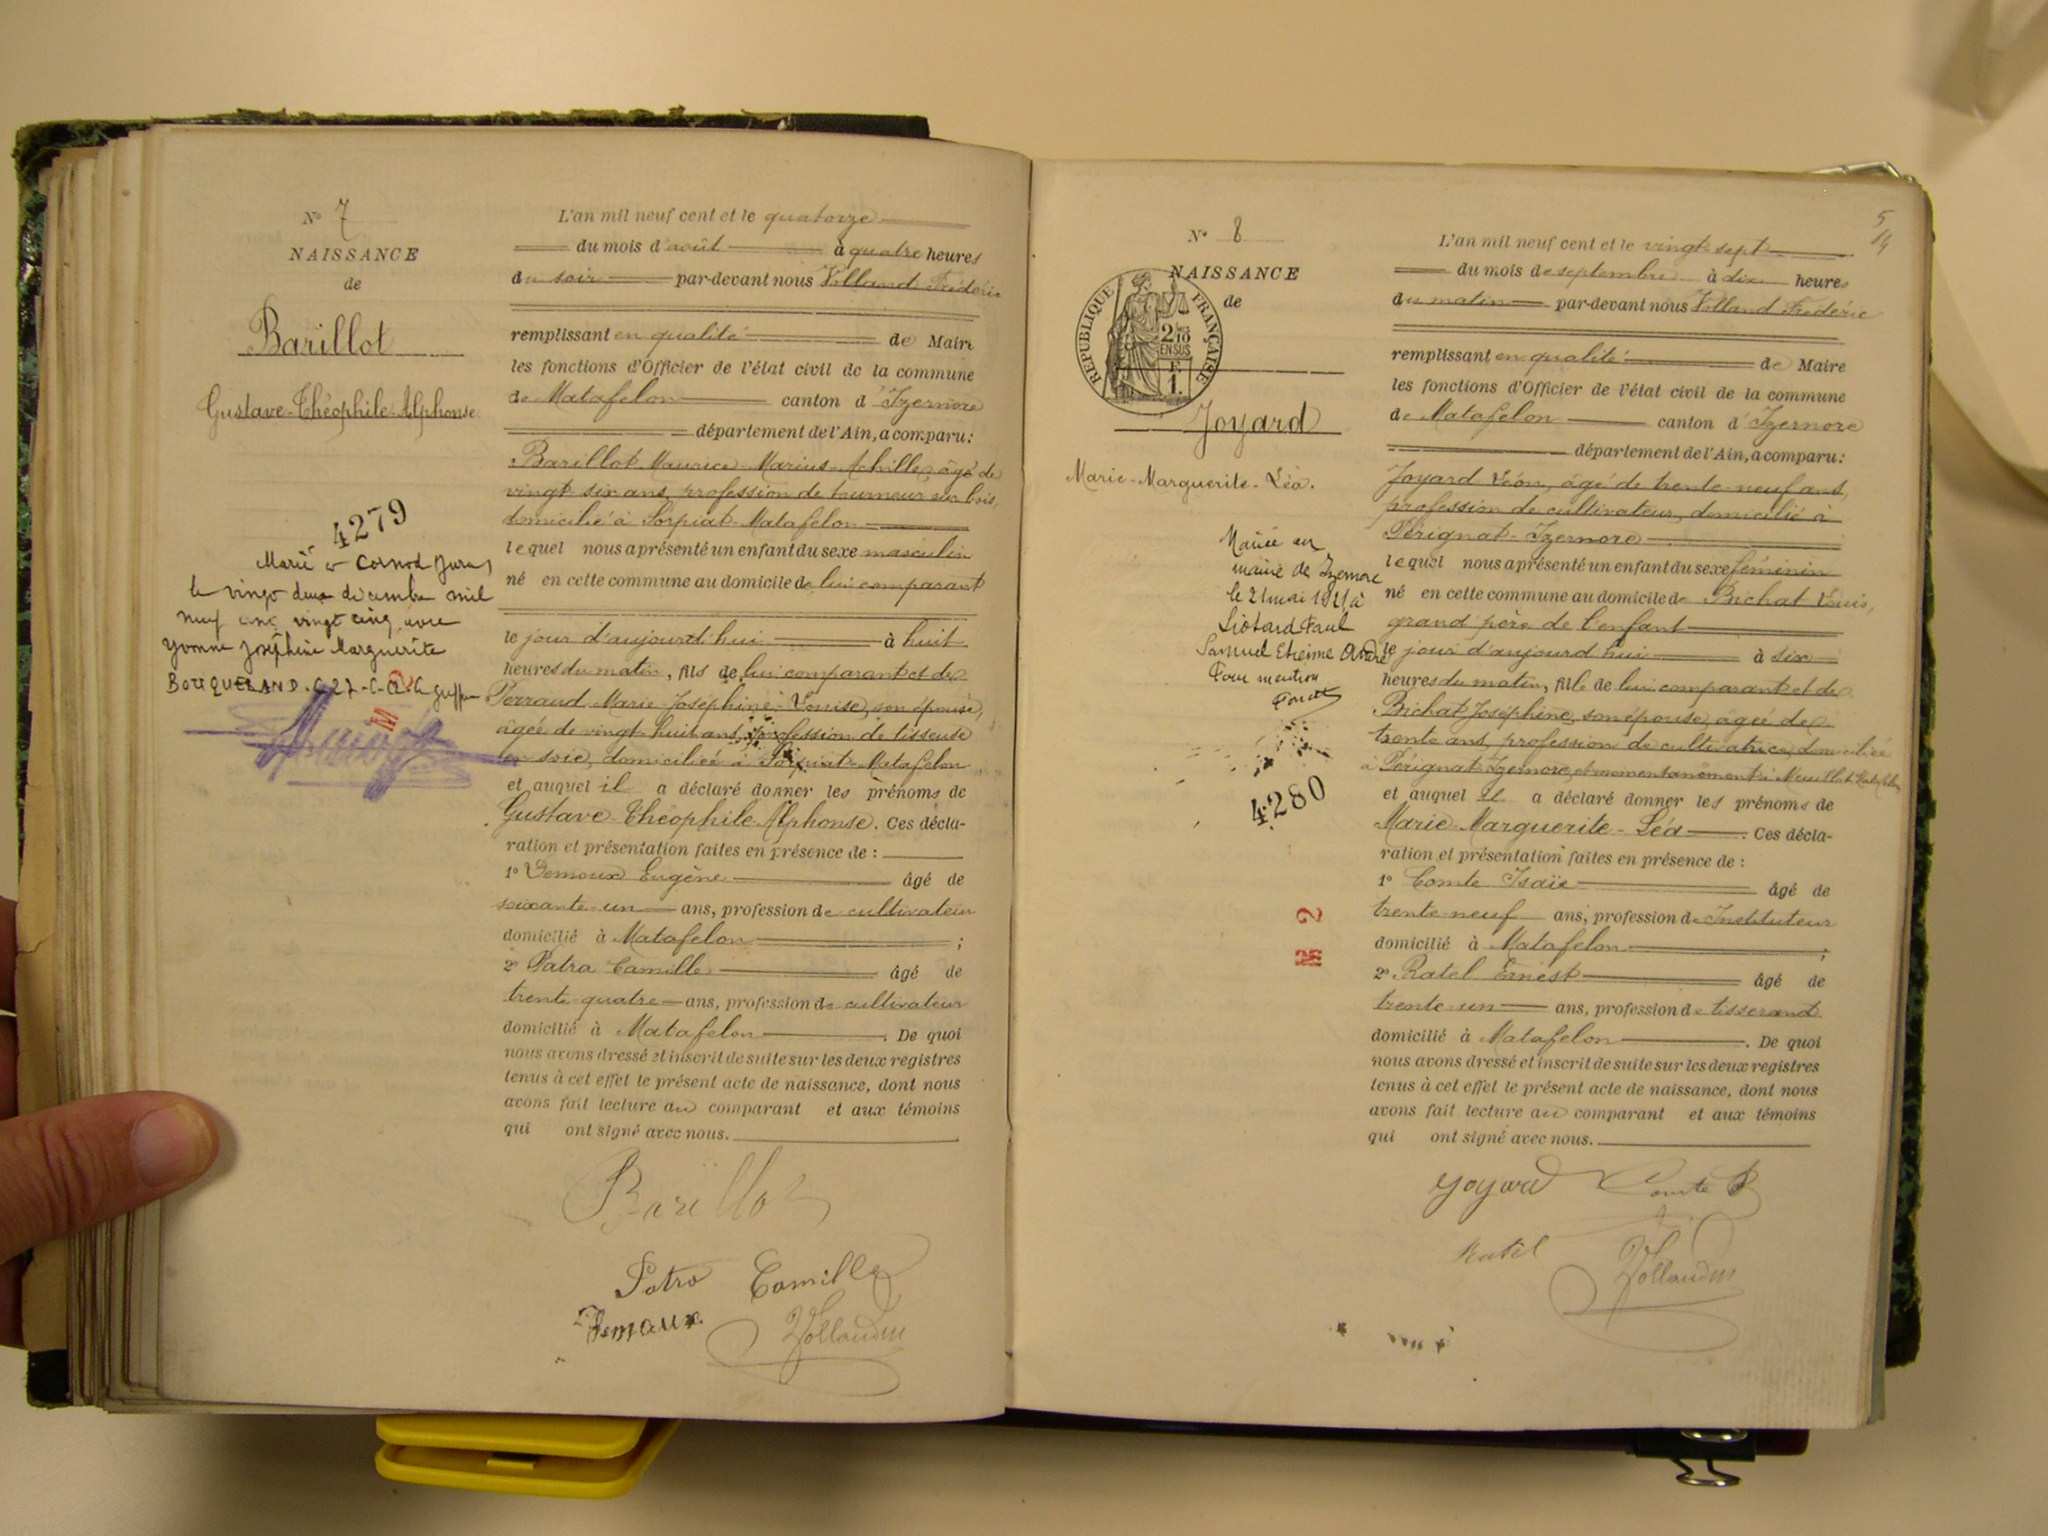 N° 7
NAISSANCE
de
Barillot
Gustave-Théophile-Alphonse
4279
Marié à Cornod Jura
le vingt deux décembre mil
neuf cent vingt cinq avec
Yvonne Joséphine Marguerite
BOUQUERAND
L'an mil neuf cent et le quatorze
du mois d'août à quatre heures
du soir par-devant nous Volland Frédéric
remplissant en qualité de Maire
les fonctions d'Officier de l'état civil de la commune
de Matafelon canton d'Izernore
département de l'Ain, a comparu:
Barillot Maurice Marius Achille, âgé de
vingt six ans, profession de tourneur sur bois,
domicilié à Sorpiat-Matafelon
lequel nous a présenté un enfant du sexe masculin
né en cette commune au domicile de lui comparant
le jour d'aujourd'hui à huit
heures du matin, fils de lui comparant et de
Perraud Marie-Joséphine-Louise, son épouse,
âgée de vingt huit ans, profession de tisseuse
en soie, domiciliée à Sorpiat-Matafelon
et auquel il a déclaré donner les prénoms de
Gustave-Théophile-Alphonse. Ces décla-
ration et présentation faites en présence de :
1° Demoux Eugène âgé de
soixante-un ans, profession de cultivateur
domicilié à Matafelon ;
2° Patra Camille âgé de
trente-quatre ans, profession de cultivateur
domicilié à Matafelon. De quoi
nous avons dressé et inscrit de suite sur les deux registres
tenus à cet effet le présent acte de naissance, dont nous
avons fait lecture au comparant et aux témoins
qui ont signé avec nous.
Barillot
Patra Camille
Demoux
N° 8
NAISSANCE
de
RÉPUBLIQUE FRANÇAISE
EN SUS
Joyard
Marie-Marguerite-Léa.
Mariée en
mairie de Izernore
le 21 mai 1921 à
Liotard Paul
Samuel Etienne André
Pour mention
4280
M 2
L'an mil neuf cent et le vingt-sept
du mois de septembre à dix heures
du matin par-devant nous Volland Frédéric
remplissant en qualité de Maire
les fonctions d'Officier de l'état civil de la commune
de Matafelon canton d'Izernore
département de l'Ain, a comparu:
Joyard Léon, âgé de trente-neuf ans,
profession de cultivateur, domicilié à
Pérignat-Izernore
lequel nous a présenté un enfant du sexe féminin
né en cette commune au domicile de Bichat Louis,
grand père de l'enfant
le jour d'aujourd'hui à six
heures du matin, fille de lui comparant et de
Bichat Joséphine, son épouse, âgée de
trente ans, profession de cultivatrice, domiciliée
à Pérignat-Izernore, et momentanément à
et auquel il a déclaré donner les prénoms de
Marie-Marguerite-Léa. Ces décla-
ration et présentation faites en présence de :
1° Comte Isaïe âgé de
trente-neuf ans, profession d'Instituteur
domicilié à Matafelon ;
2° Ratel Ernest âgé de
trente-un ans, profession de tisserand
domicilié à Matafelon. De quoi
nous avons dressé et inscrit de suite sur les deux registres
tenus à cet effet le présent acte de naissance, dont nous
avons fait lecture au comparant et aux témoins
qui ont signé avec nous.
Joyard Comte
Ratel